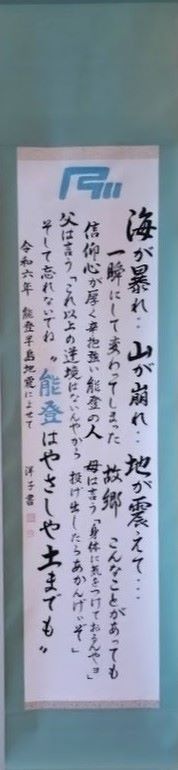 海が暴れ‥山が崩れ…地が震えて…
一瞬にして変わってしまった 故郷 こんなことがあっても
信仰心が厚く辛抱強い能登の人 母は言う「身体に気をつけておるんやョ」
父は言う「これ以上の逆境はないんやから 投げ出したらあかんげぞ」
そして忘れないでね “能登はやさしや土までも”
令和六年 能登半島地震によせて 洋子書